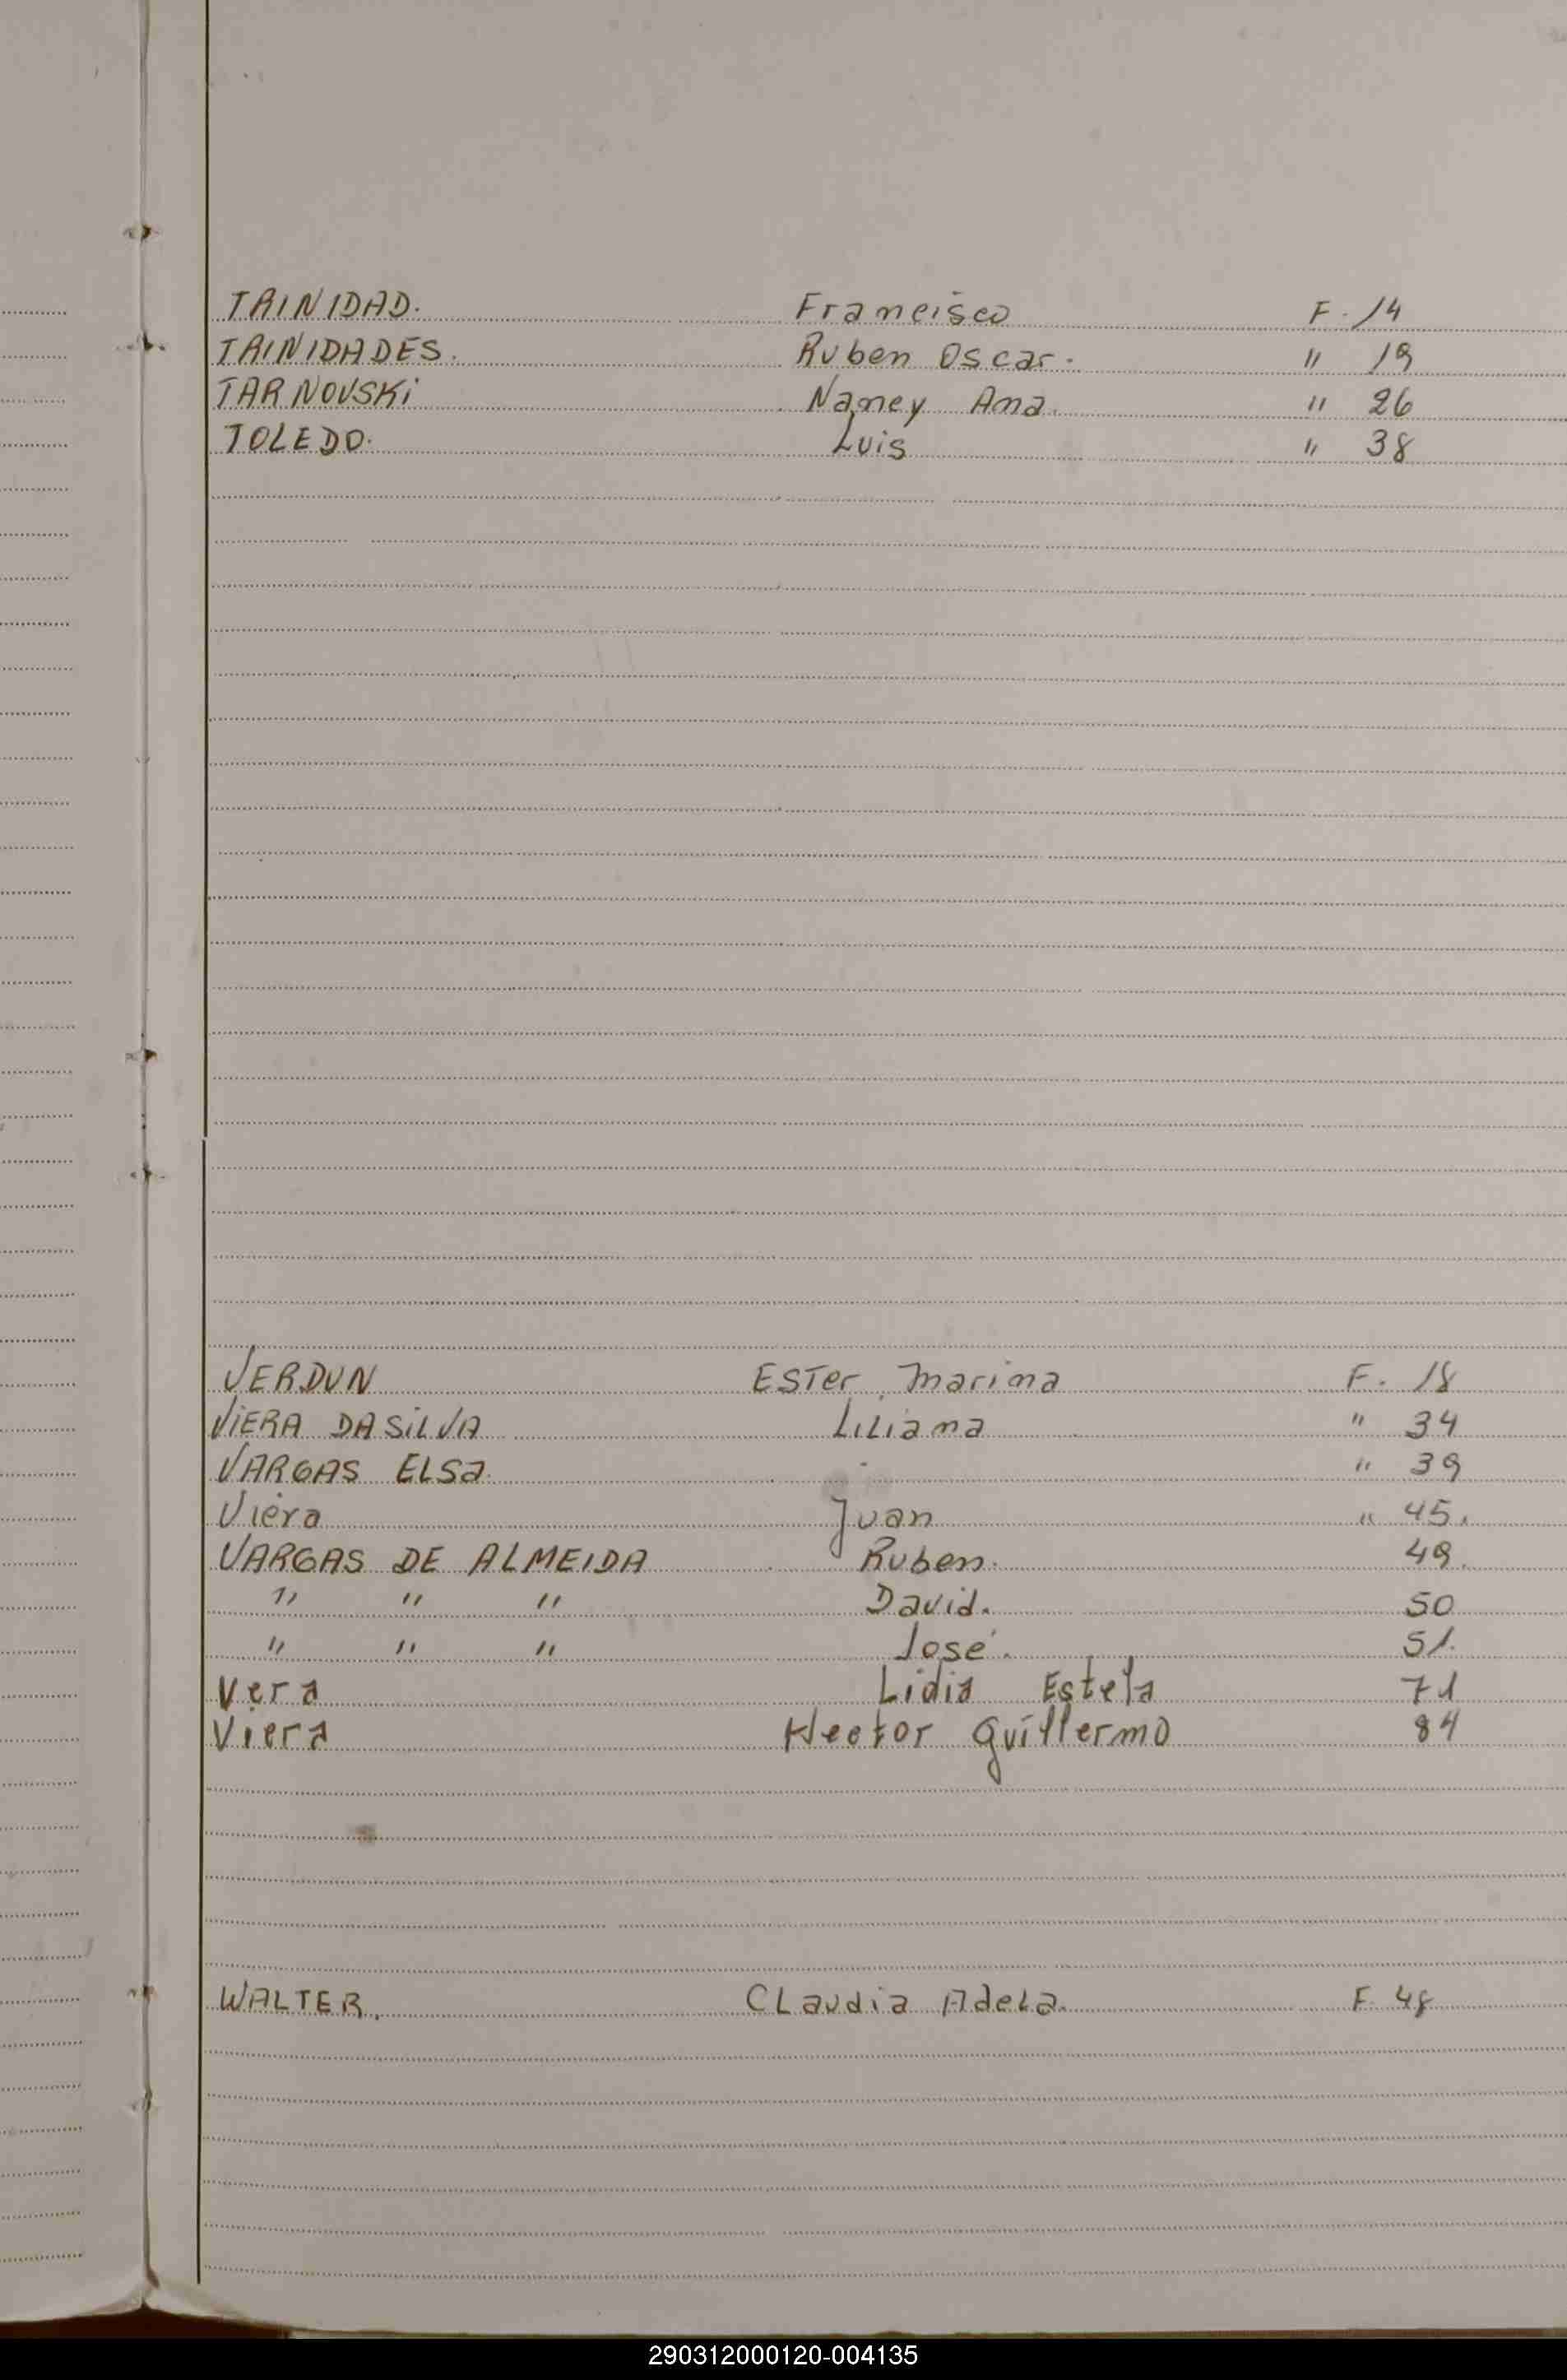 TRINIDAD. Francisco F. 14
TRINIDADES. Ruben Oscar. " 19
TARNOVSKi Nancy Ana. " 26
TOLEDO. Luis " 38
VERDUN ESTer Marina F. 18
ViERA DASiLVA LiLiana " 34
VARGAS ELSa. " 39
Viera Juan " 45.
VARGAS DE ALMEIDA Ruben. 49.
" " " David. 50
" " " José. 51.
Vera Lidia Estela 71
Viera Hector Guillermo 84
WALTER. CLaudia AdeLa. F. 48
290312000120-004135